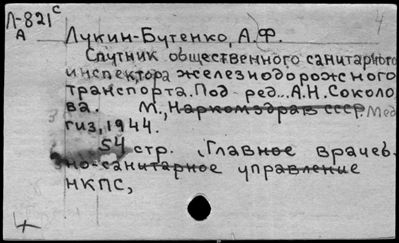 Л-821 с
А
4
Лукин-Бутенко, А.Ф.
Спутник общественного санитарного
инспектора железнодорожного
транспорта. Под ред... А.Н. Соколо
ва. М., Наркомздрав СССР. Мед
гиз, 1944.
54 стр. (Главное врачеб.
но-санитарное управление
НКПС,